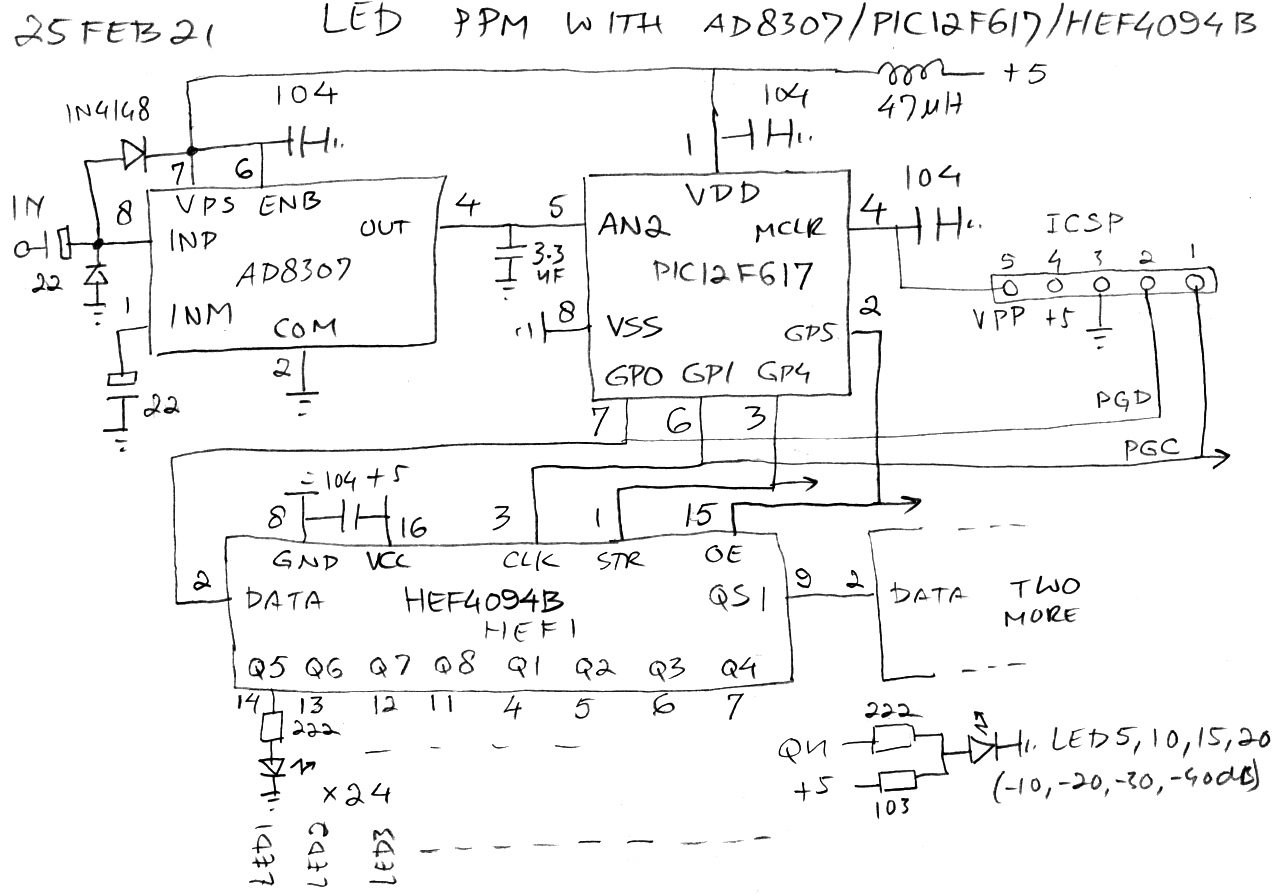 25 FEB 21 LED PPM WITH AD8307/PIC12F617/HEF4094B
+5
47µH
104
104
1N4148
7 6 1
VPS ENB VDD
104
IN 8 4 5 4
OUT AN2 MCLR
INP
ICSP
AD8307 3.3 PIC12F617
µF
5 4 3 2 1
22
1 INM 8 VSS GP5 2
VPP +5
COM
2
GP0 GP1 GP4
22 7 6 3
PGD
PGC
104 +5
8 16 3 1 15
GND VCC CLK STR OE
2 DATA HEF4094B QS1 9 2 DATA TWO
HEF1 MORE
Q5 Q6 Q7 Q8 Q1 Q2 Q3 Q4
14 13 12 11 4 5 6 7
222
222
QN LED 5, 10, 15, 20
+5 (-10, -20, -30, -40dB)
103
x24
LED1 LED2 LED3